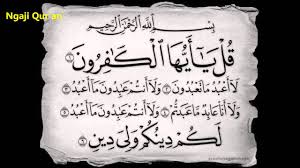 Ngaji Qur'an
بِسْمِ اللهِ الرَّحْمٰنِ الرَّحِيْمِ
قُلْ يٰٓأَيُّهَا الْكٰفِرُوْنَ
لَآ أَعْبُدُ مَا تَعْبُدُوْنَ وَلَآ أَنْتُمْ عٰبِدُوْنَ مَآ أَعْبُدُ
وَلَآ أَنَا عَابِدٌ مَّا عَبَدْتُّمْ وَلَآ أَنْتُمْ عٰبِدُوْنَ مَآ أَعْبُدُ
لَكُمْ دِيْنُكُمْ وَلِيَ دِيْنِ